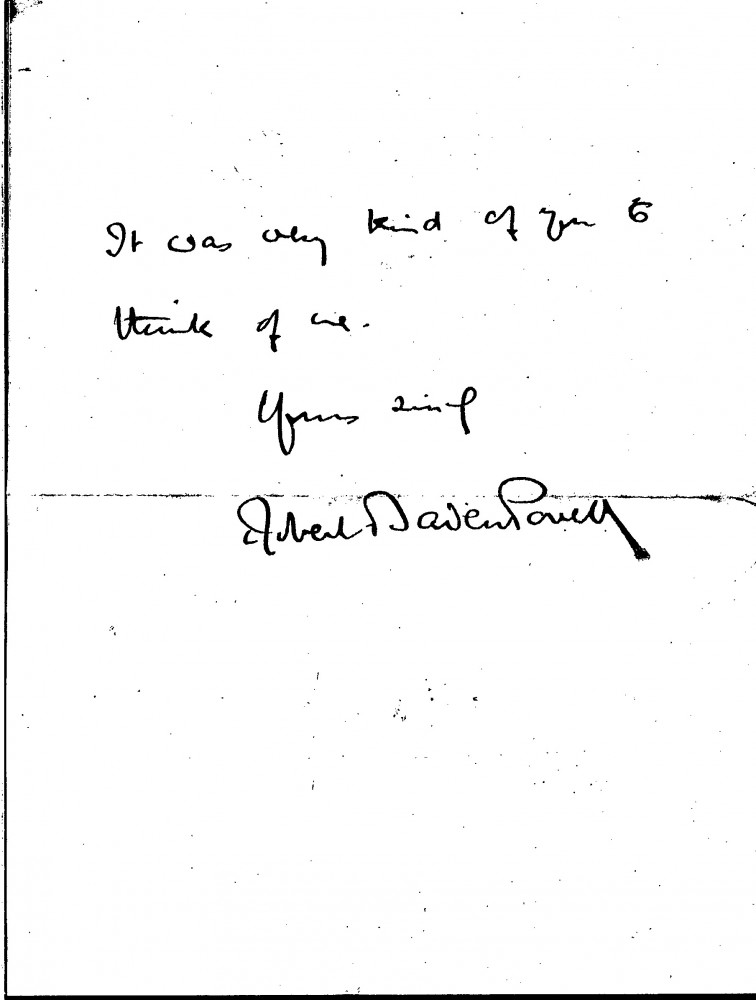 It was very kind of you to
think of me.
Yours sincly
Robert Baden Powell